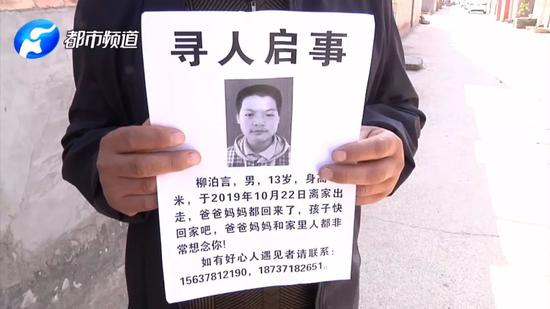 都市频道
寻人启事
柳泊言，男，13岁，身高
米，于2019年10月22日离家出
走，爸爸妈妈都回来了，孩子快
回家吧，爸爸妈妈和家里人都非
常想念你！
如有好心人遇见者请联系：
15637812190，18737182651。